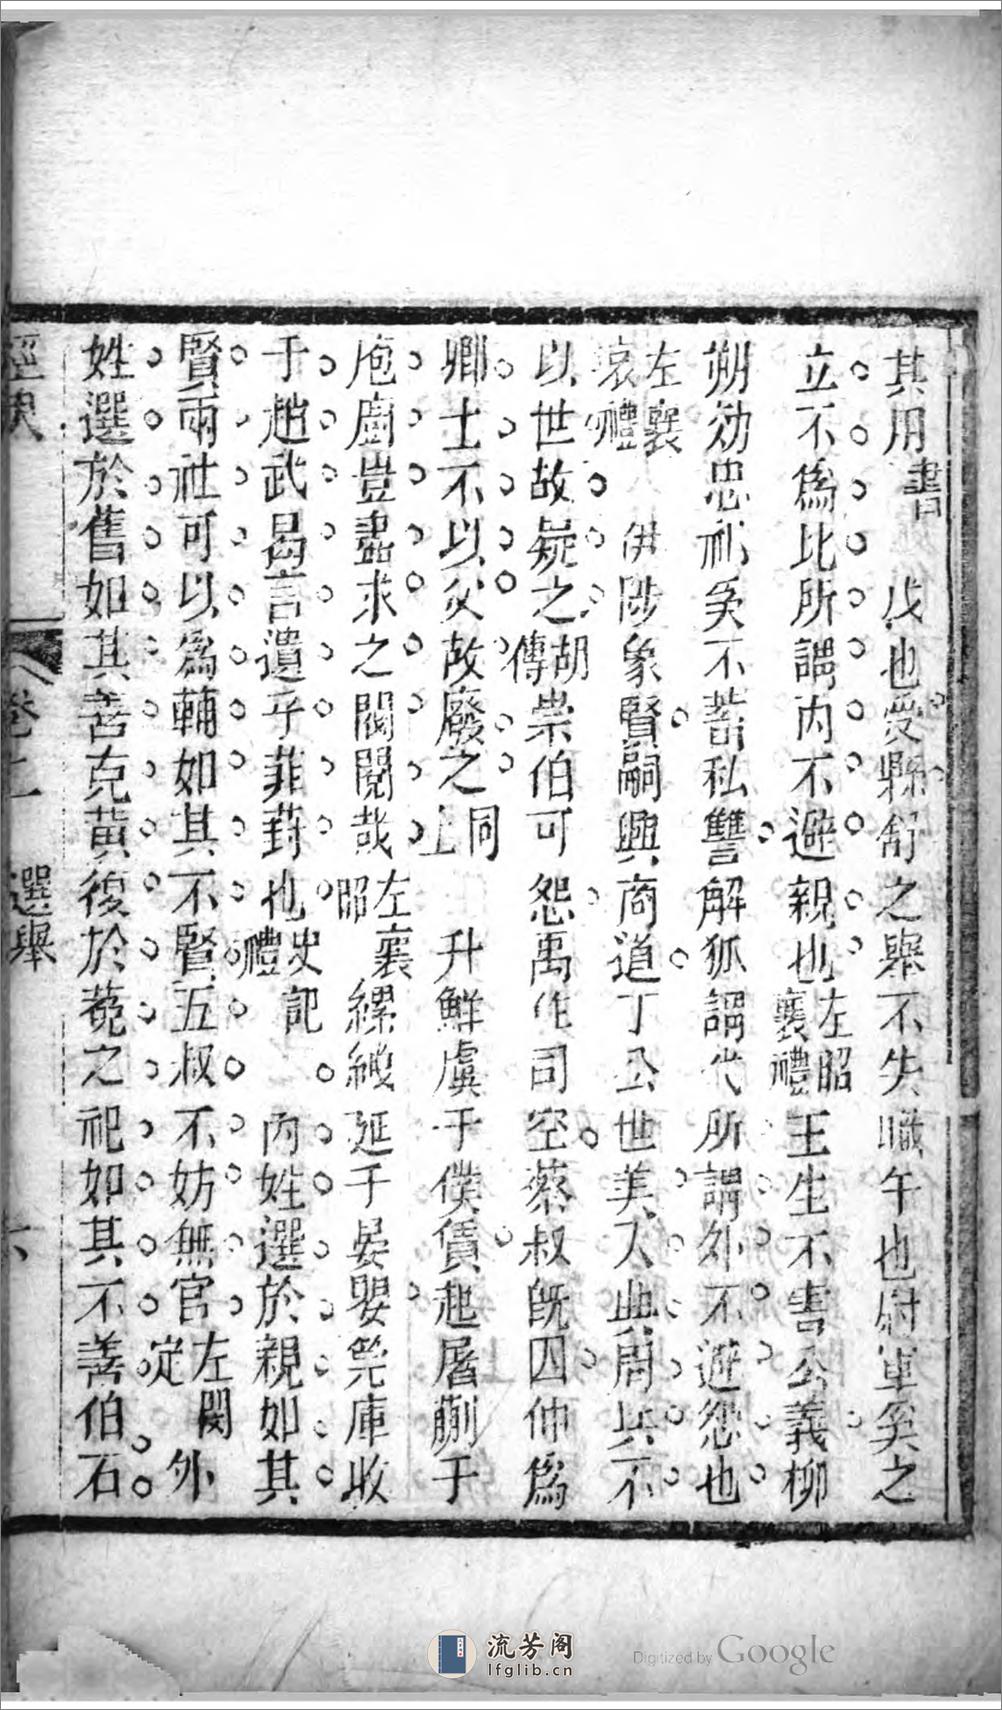 其用書 戊也受縣舒之舉不失職午也尉軍奚之
立不爲比所謂內不避親也左昭襄禮王生不害公義柳
朔効忠祁奚不蓄私讐解狐謂代所謂外不避怨也
左襄哀禮 伊陟象賢嗣興商道丁公世美入典周兵不
以世故疑之胡傳崇伯可怨禹作司空蔡叔旣囚仲爲
卿士不以父故廢之同上 升鮮虞于僕賃起屠蒯于
庖廚豈盡求之閥閱哉左襄昭縲絏延于晏嬰筦庫收
于趙武曷言遺乎菲葑也史記禮 內姓選於親如其
賢兩社可以爲輔如其不賢五叔不妨無官左閔定 外
姓選於舊如其善克黃復於蒍之祀如其不善伯石
卷上 選舉 六
流芳阁
lfglib.cn
Digitized by Google